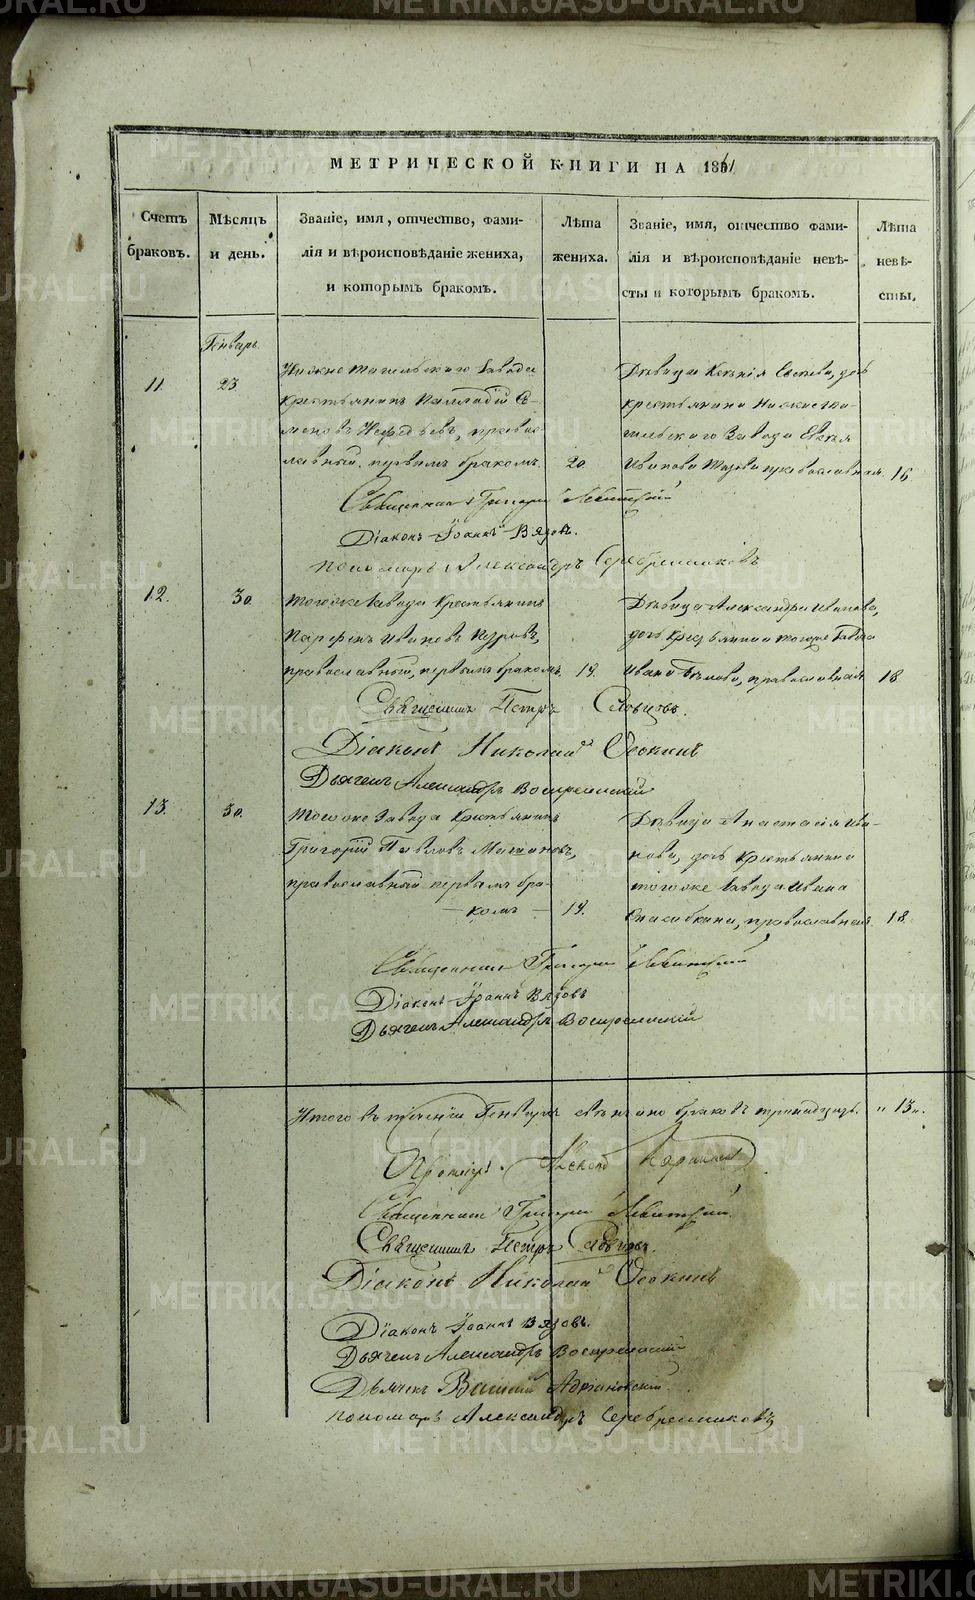 МЕТРИЧЕСКОЙ КНИГИ НА 1861
Счетъ браковъ.
Мѣсяцъ и день.
Званіе, имя, отчество, фамилія и вѣроисповѣданіе жениха, и которымъ бракомъ.
Лѣта жениха.
Званіе, имя, отчество фамилія и вѣроисповѣданіе невѣсты и которымъ бракомъ.
Лѣта невѣсты.
Генварь
11. 23
Нижнетагильскаго Завода
крестьянинъ Палладій Се-
меновъ, правос-
лавный, первымъ бракомъ. 20.
Дѣвица Ксенія Евсѣева, дочь
крестьянина Нижнета-
гильскаго Завода Евсѣя
Иванова православная. 16
Священникъ Григорій Левитскій
Діаконъ Іоаннъ Вязовъ.
Пономарь Александръ Серебренниковъ
12. 30.
Тогоже Завода Крестьянинъ
Парфенъ Ивановъ
православный, первымъ бракомъ. 19.
Дѣвица Александра Иванова,
дочь Крестьянина тогоже Завода
Ивана Бѣлова, православная 18
Священникъ Петръ Словцовъ.
Діаконъ Николай Осокинъ
Дьячекъ Александръ Воскресенскій
13. 30.
Тогоже Завода Крестьянинъ
Григорій Павловъ
православный первымъ бра-
комъ 19.
Дѣвица Анастасія Ива-
нова, дочь Крестьянина
тогоже Завода Ивана
православная. 18.
Священникъ Григорій Левитскій
Діаконъ Іоаннъ Вязовъ
Дьячекъ Александръ Воскресенскій
Итого въ теченіи Генваря бракосъ тринадцать. " 13 ".
Протоіерей
Священникъ Григорій Левитскій
Священникъ Петръ Словцовъ.
Діаконъ Николай Осокинъ
Діаконъ Іоаннъ Вязовъ.
Дьячекъ Александръ Воскресенскій
Дьячекъ Василій Адріановскій
Пономарь Александръ Серебренниковъ
METRIKI.GASO-URAL.RU